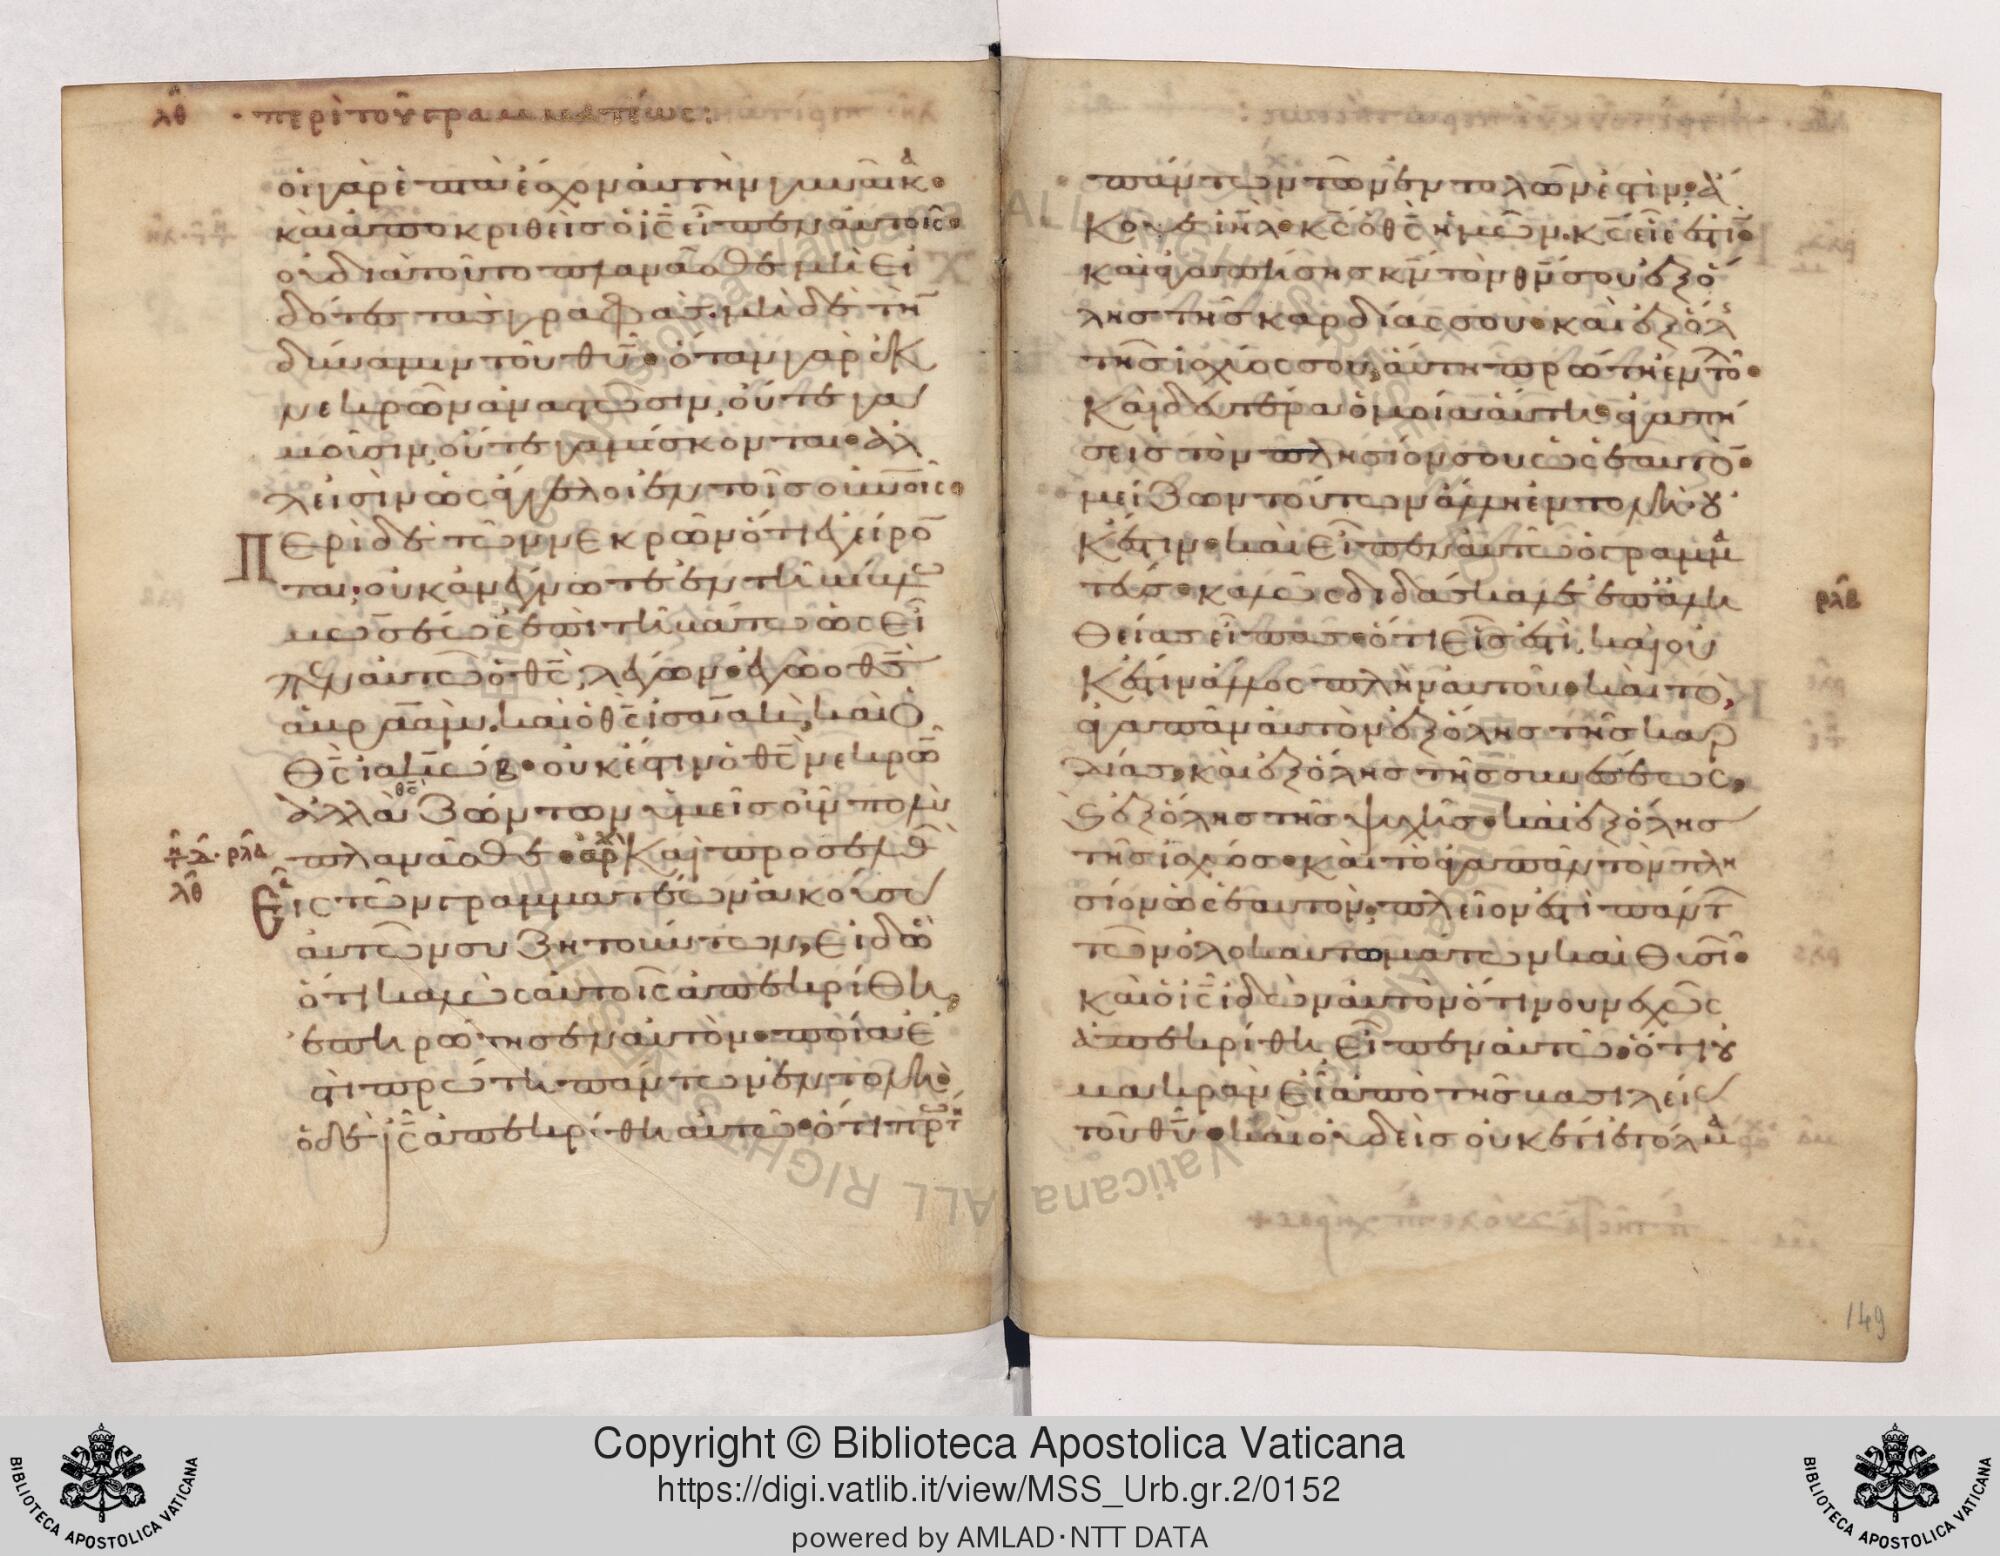 λθ · περὶ τοῦ γραμματέως:
οἱ γὰρ ἑπτὰ ἔσχον αὐτὴν γυναῖκα·
καὶ ἀποκριθεὶς ὁ ις̄ εἶπεν αὐτοῖς·
οὐ διὰ τοῦτο πλανᾶσθε μὴ εἰ
δότες τὰς γραφὰς. μὴ δὲ τὴν
δύναμιν τοῦ θῡ· ὅταν γὰρ ἐκ
νεκρῶν ἀναστῶσιν, οὔτε γα
μοῦσιν, οὔτε γαμίσκονται· ἀλ
λ' εἰσὶν ὡς ἄγγελοι ἐν τοῖς οὐνοῖς·
Περὶ δὲ τῶν νεκρῶν ὅτι ἐγείρον
ται, οὐκ ἀνέγνωτε ἐν τῆ βίβλω
μωσέως ἐπὶ τῆ βάτω ὡς εἶ
πεν αὐτῶ ὁ θς̄, λέγων· ἐγὼ ὁ θς̄
ἀβραάμ. καὶ ὁ θς̄ ἰσαάκ, καὶ ὁ
θς̄ ἰακώβ· οὐκ ἔστιν ὁ θς̄ νεκρῶν
ἀλλὰ θς̄ ζώντων ὑμεῖς οὖν πολὺ
πλανᾶσθε· ἀρχ Καὶ προσελθὼν
ρλα
λθ
εἷς τῶν γραμματέων ἀκούσας
αὐτῶν συζητούντων, εἰδὼς
ὅτι καλῶς αὐτοῖς ἀπεκρίθη,
ἐπηρώτησεν αὐτὸν· ποία ἐ
στὶ πρώτη πάντων ἐντολή·
ὁ δὲ ις̄ ἀπεκρίθη αὐτῶ· ὅτι πρώτη
πάντων τῶν ἐντολῶν ἐστὶν· ἄ
κουε ιη̄λ· κς̄ ὁ θς̄ ἡμῶν. κς̄ εἷς ἐστίν·
καὶ ἀγαπήσης κν̄ τὸν θν̄ σου ἐξ ὅ
λης τῆς καρδίας σου· καὶ ἐξ ὅλης
τῆς ἰσχύος σου, αὕτη πρώτη ἐντολή·
Καὶ δευτέρα ὁμοία αὐτῆ· ἀγαπή
σεις τὸν πλησίον σου ὡς ἑαυτόν·
μείζων τούτων ἄλλη ἐντολὴ οὐ
κ ἔστιν· καὶ εἶπεν αὐτῶ ὁ γραμμα
τεύς· καλῶς διδάσκαλε ἐπ' ἀλη
θείας εἶπας· ὅτι εἷς ἐστὶ, καὶ οὐ
κ ἔστιν ἄλλος πλὴν αὐτοῦ· καὶ τὸ,
ἀγαπᾶν αὐτὸν ἐξ ὅλης τῆς καρ
δίας, καὶ ἐξ ὅλης τῆς συνέσεως,
καὶ ἐξ ὅλης τῆς ψυχῆς· καὶ ἐξ ὅλης
τῆς ἰσχύος· καὶ τὸ ἀγαπᾶν τὸν πλη
σίον ὡς ἑαυτὸν, πλεῖον ἐστὶ πάντων
τῶν ὁλοκαυτωμάτων καὶ θυσιῶν·
καὶ ὁ ις̄ ἰδὼν αὐτὸν ὅτι νουνεχῶς
ἀπεκρίθη εἶπεν αὐτῶ· ὅτι οὐ
μακρὰν εἶ ἀπὸ τῆς βασιλείας
τοῦ θῡ· καὶ οὐδεὶς οὐκ ἔτι ἐτόλμα
ρλβ
149
Copyright © Biblioteca Apostolica Vaticana
https://digi.vatlib.it/view/MSS_Urb.gr.2/0152
powered by AMLAD·NTT DATA
BIBLIOTECA APOSTOLICA VATICANA
BIBLIOTECA APOSTOLICA VATICANA